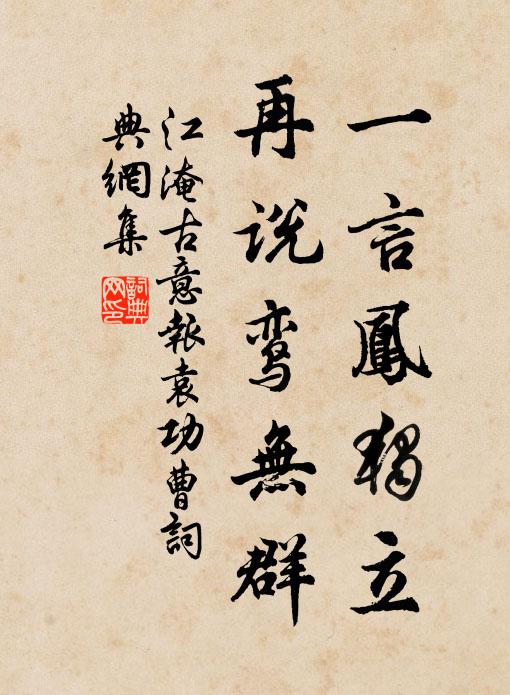 一言鳳獨立
再说鸾無群
江淹古意報袁功曹詞
典網集
詞典
网印